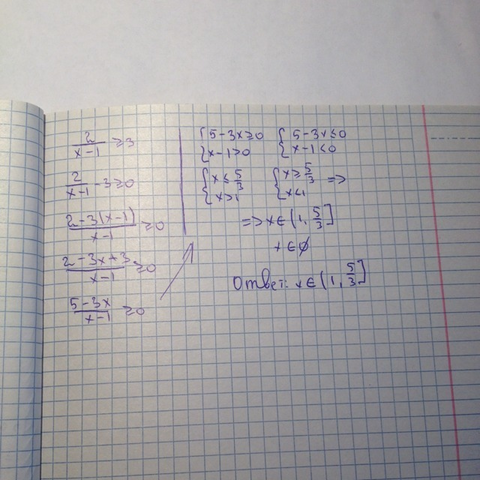 2/(x-1) ≥ 3
2/(x-1) - 3 ≥ 0
(2-3(x-1))/(x-1) ≥ 0
(2-3x+3)/(x-1) ≥ 0
(5-3x)/(x-1) ≥ 0
{5-3x≥0 {5-3x≤0
{x-1>0 {x-1<0
{x≤5/3 {x≥5/3 =>
{x>1 {x<1
=> x∈(1, 5/3]
x∈∅
Ответ: x∈(1, 5/3]